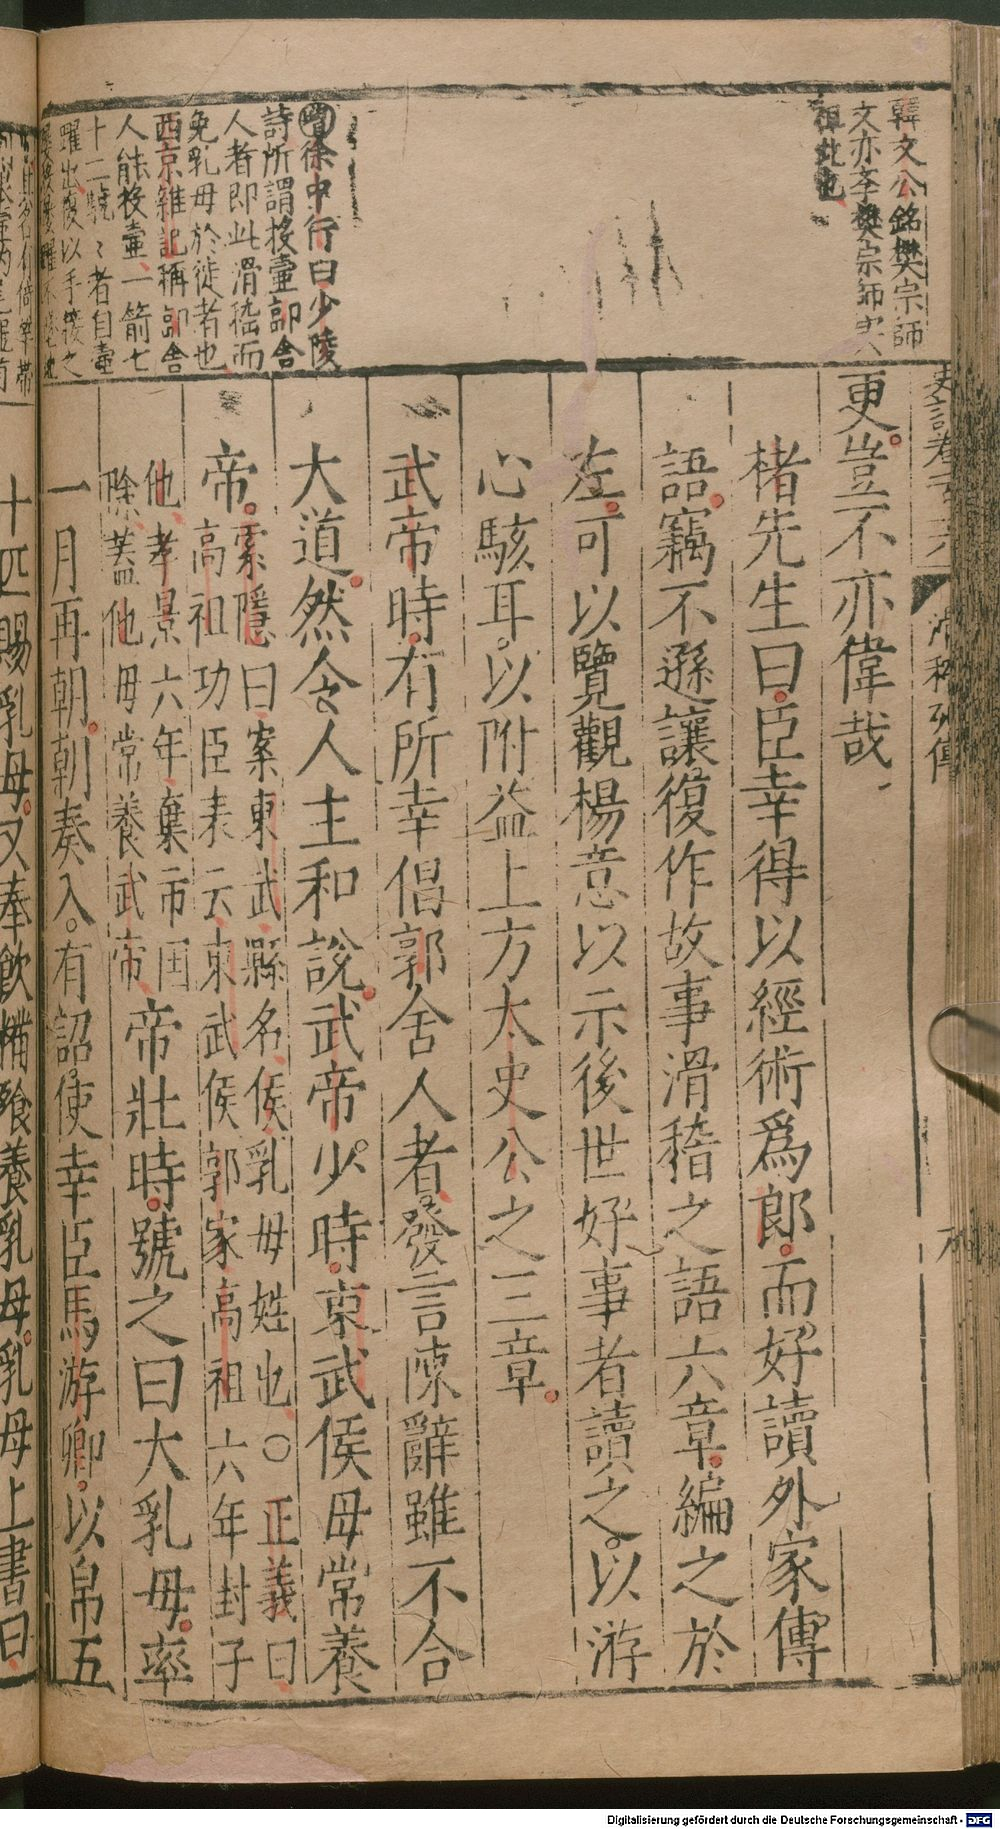 韓文公銘樊宗師
文亦李樊宗師
滑稽列傳
更豈不亦偉哉
褚先生曰臣幸得以經術爲郎而好讀外家傳
語竊不遜讓復作故事滑稽之語六章編之於
左可以覽觀楊意以示後世好事者讀之以游
心駭耳以附益上方太史公之三章
武帝時有所幸倡郭舍人者發言陳辭雖不合
大道然令人主和說武帝少時東武侯母常養
帝索隱曰案東武縣名侯乳母姓也○正義曰
高祖功臣表云東武侯郭家高祖六年封子
他孝景六年棄市国
除蓋他母常養武帝
帝壯時號之曰大乳母率
一月再朝朝奏入有詔使幸臣馬游卿以帛五
徐中行曰少陵
詩所謂投壷郭舍
人者即此滑稽而
免乳母於徙者也
西京雜記稱郭舍
人能投壷一箭七
十二驍〻者自壷
躍出復以手接之
十匹賜乳母又奉飲糒飱養乳母乳母上書曰
Digitalisierung gefördert durch die Deutsche Forschungsgemeinschaft - DFG